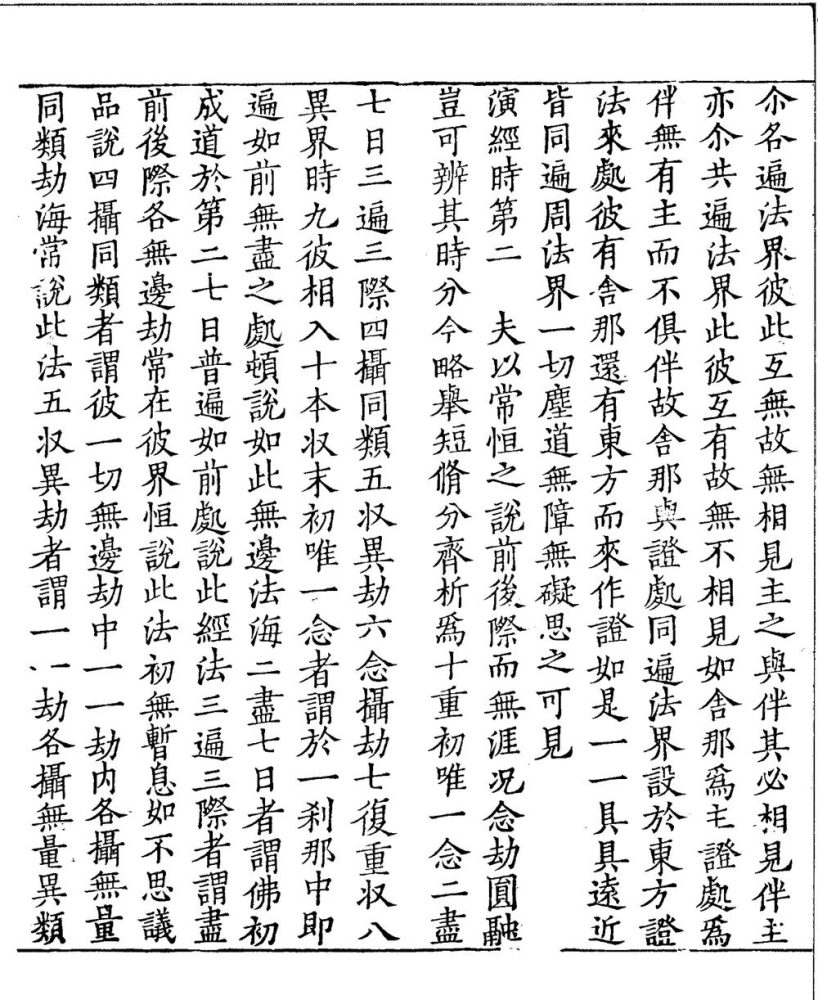 尒名遍法界彼此互無故無相見主之與伴其必相見伴主
亦尒共遍法界此彼互有故無不相見如舍那爲主證處爲
伴無有主而不俱伴故舍那與證處同遍法界設於東方證
法來處彼有舍那還有東方而來作證如是一一具具遠近
皆同遍周法界一切塵道無障無礙思之可見
演經時第二　夫以常恒之說前後際而無涯况念劫圓融
豈可辨其時分今略舉短脩分齊析爲十重初唯一念二盡
七日三遍三際四攝同類五収異劫六念攝劫七復重収八
異界時九彼相入十本収末初唯一念者謂於一刹那中即
遍如前無盡之處頓說如此無邊法海二盡七日者謂佛初
成道於第二七日普遍如前處說此經法三遍三際者謂盡
前後際各無邊劫常在彼界恒說此法初無暫息如不思議
品說四攝同類者謂彼一切無邊劫中一一劫內各攝無量
同類劫海常說此法五収異劫者謂一一劫各攝無量異類